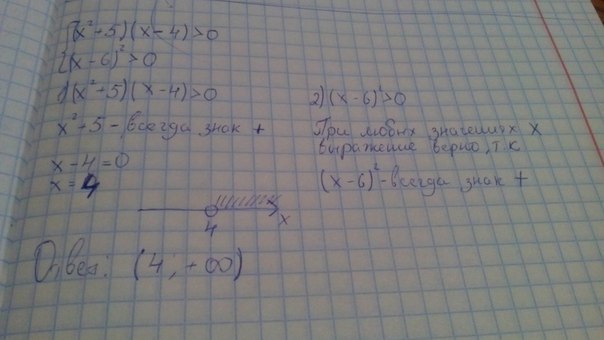 {(x²+5)(x-4)>0
{(x-6)²>0
1)(x²+5)(x-4)>0
x²+5 - всегда знак +
x-4=0
x=4
4
x
2)(x-6)²>0
При любых значениях x
выражение верно, т.к
(x-6)² - всегда знак +
Ответ: (4; +∞)